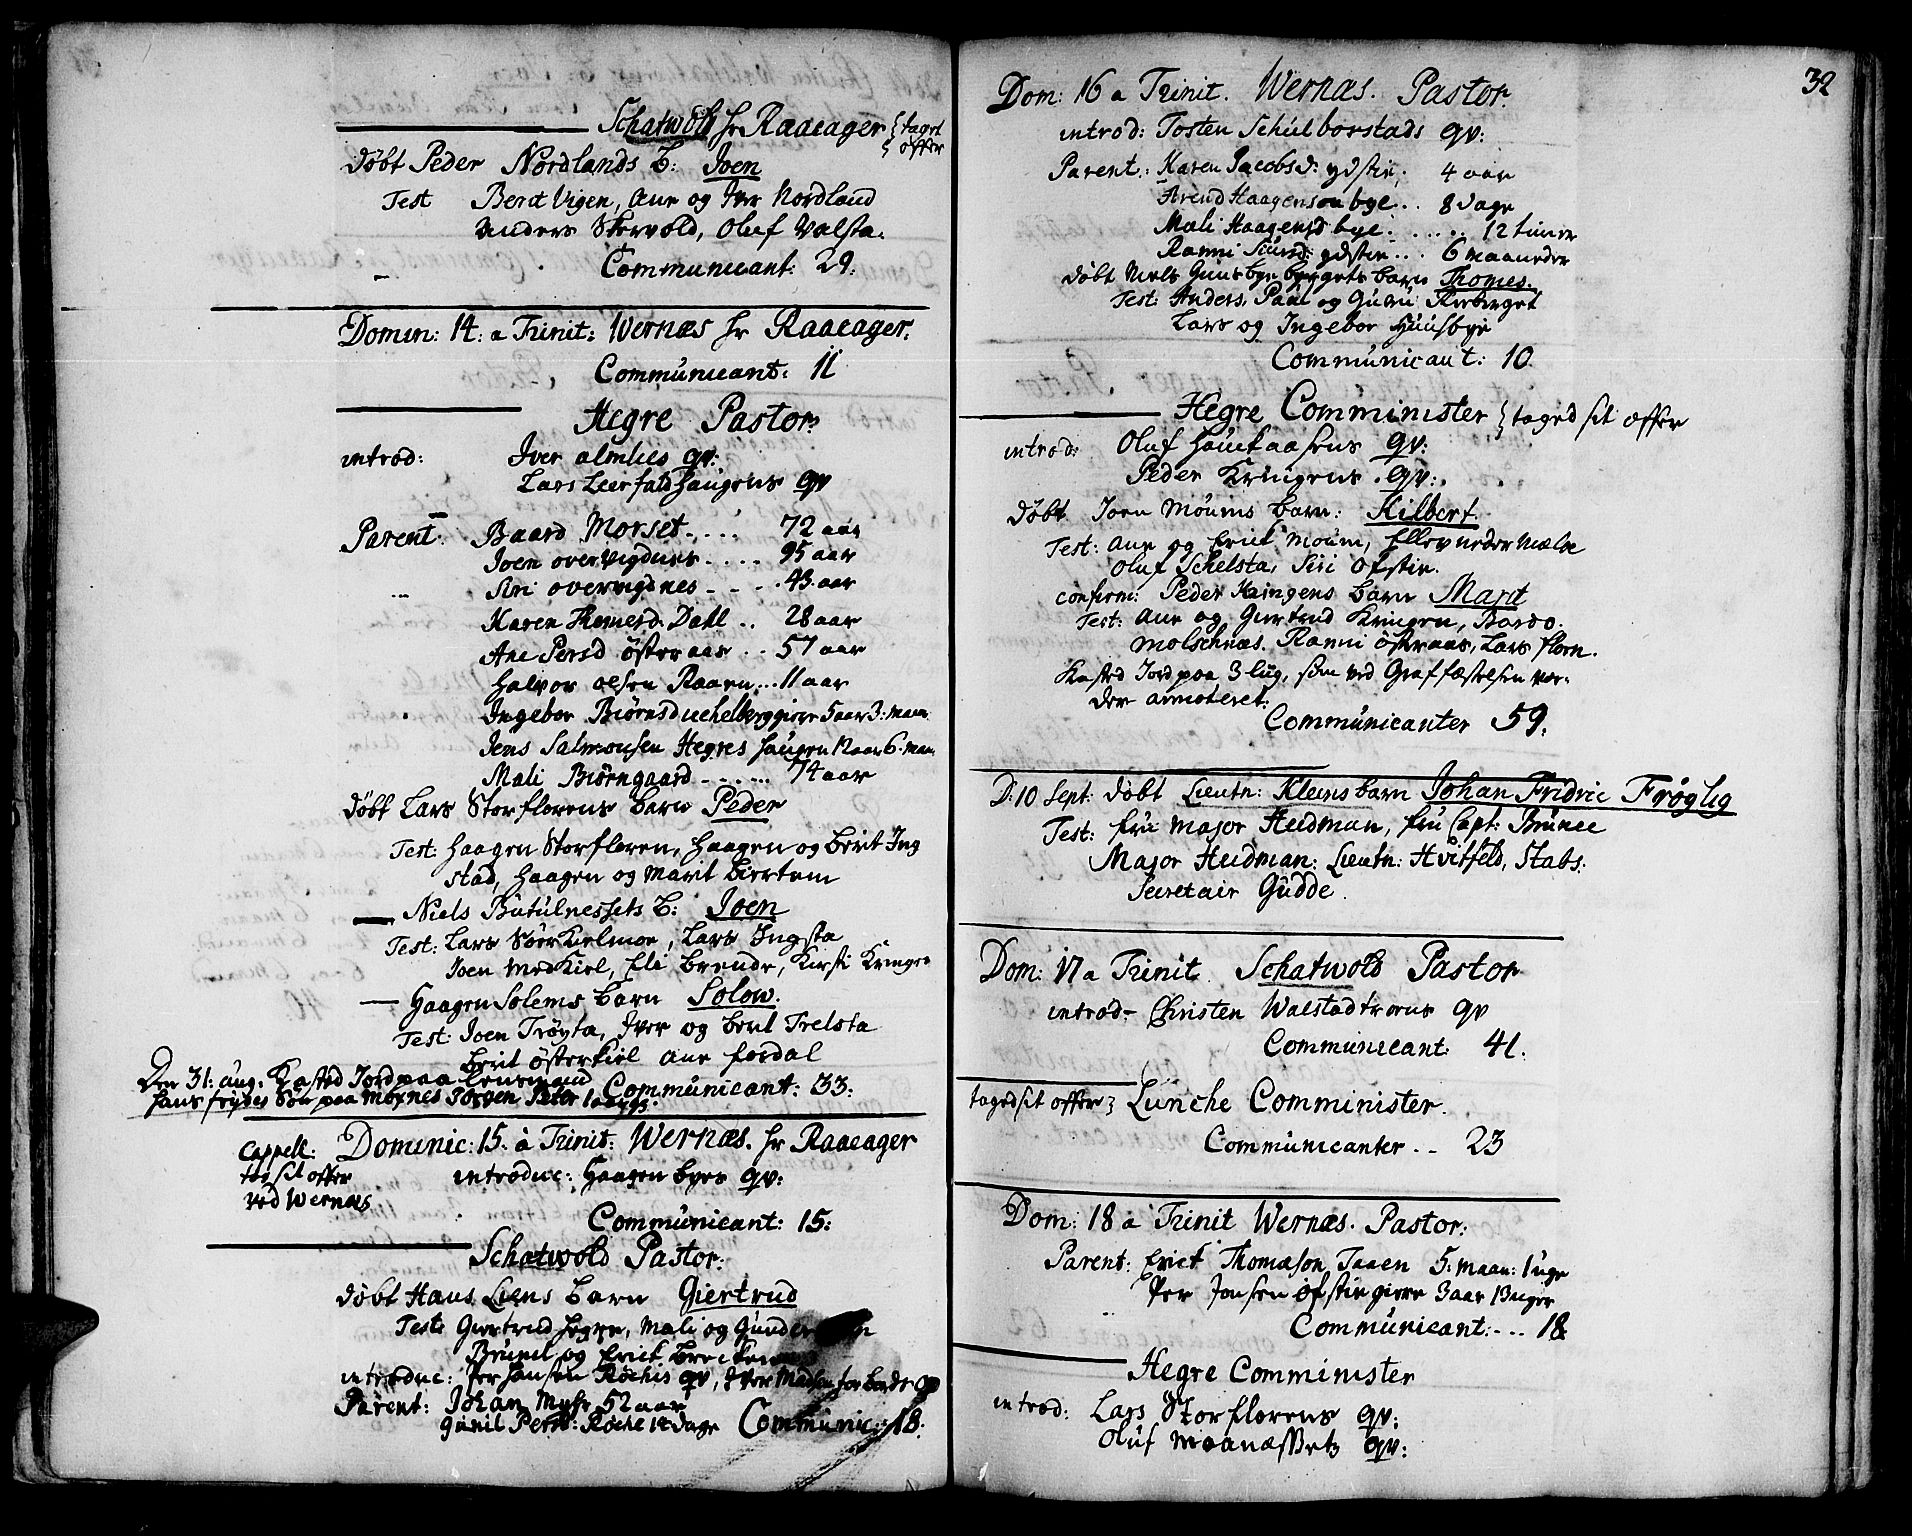 Schatwold hr Raaeager } taget
offer
Døbt Peder Nordlands b: Joen
Test Berit Vigen, Ane og Iver Nordland
Anders Stervold, Oluf Valsta.
Communicant: 29.
Domin: 14: a Trinit: Wernæs hr Raaeager.
Communicant: 11
Hegre Pastor
introd: Iver almlies qv:
Lars Leerfaldhaugens qv
Parent: Baard Morset..... 72 aar
Joen overvigdnes.... 95 aar
Siri overvigdnes - - - . 43. aar
Karen Thomesd. Dahl .. 28 aar
Ane Persd østeraas . . 57 aar
Halvor olsen Raaen... 11 aar
Ingebor Biørnsd uchelberggiere 5 aar 3: maan
Jens Salmonsen Hegres haugen 12 aar 6. maa
Mali Biørngaard - . . - . . . 74 aar
Døbt Lars Storflorens barn Peder
Test: Haagen Storfloren, Haagen og Berit Ing
stad, Haagen og Marit Biertem
— Niels Butulnessets b: Joen
Test: Lars Sørkielmoe, Lars Ingsta
Joen Medkiel, Eli Brende, Kirsti Kringen
— Haagen Solems barn Solow.
Test: Joen Trøyta, Iver og Berit Trelsta
Berit østerkiel Ane fordal
Den 31: aug. Kasted Jord paa Lensmand
Communicant: 33:
Hans søn paa Moxnes Jørgen Peter 1 aar
Dominic: 15. à Trinit: Wernæs. hr Raaeager
Cappell:
tog sit offer
ved Wernæs
introduc: Haagen byes qv:
Communicant: 15:
Schatwold Pastor:
Døbt Hans Liens barn Giertrud
Test: Giertrud hegre, Mali og Gunder
Brunel og Erick
introduc: Per Hansen Røchis qv, Iver Madsen qv
Parent: Johan Myhr 52 aar
Gunil Persd: Røche 14 dage Communic: 18:
32
Dom: 16 a Trinit. Wernæs. Pastor.
introd: Tosten Schulborstads qv:
Parent: Karen Jacobsd: ydstie. 4 aar
Arend Haagensøn bye . . 8 dage
Mali Haagensd bye . . . . . . 12 timer
Ranni Siursd: ydstie . . . 6 maaneder
Døbt Niels barn Thomes.
Test: Anders, Paul og Guru Kleberget
Lars og Ingebor Huusbye
Communicant: 10.
Hegre Comminister } taged sit offer
introd: Oluf Hauckaasens qv:
Peder Kringens . qv:
Døbt Joen Moums barn: Kilbert
Test: Ane og Erick Moum, Ellev neder Mælbe
Oluf Schelsta, Siri Ofstie.
confirm: Peder Kringens barn Marit
Test: Ane og Giertrud Kringen, Bardo.
Molschnæs. Ranni østeraas, Lars floen.
Kasted Jord paa 3 lug, som ved Graffæstelsen vor-
der annoteret.
Communicanter 59.
D: 10 Sept: døbt Lieutn: Kleins barn Johan Fridric Frøglig
Test: fru Major Heidman, fru Capt: Brunce
Major Heidman: Lieutn: Hvitfeld, Stabs.
Secretair Gudde.
Dom: 17 a Trinit. Schatwold Pastor
introd- Christen Walstadtrøens qv
Communicant 41.
taged sit offer } Lunche Comminister.
Communicanter . . 23
Dom: 18 a Trinit Wernæs. Pastor:
Parent: Erick Thomæson Taaen 5. maan: 1 uge
Per Jonsen ofstie giere 3 aar 13 uger
Communicant: - . . 18
Hegre Comminister
introd: Lars Storflorens qv:
Oluf Moanæssets qv: